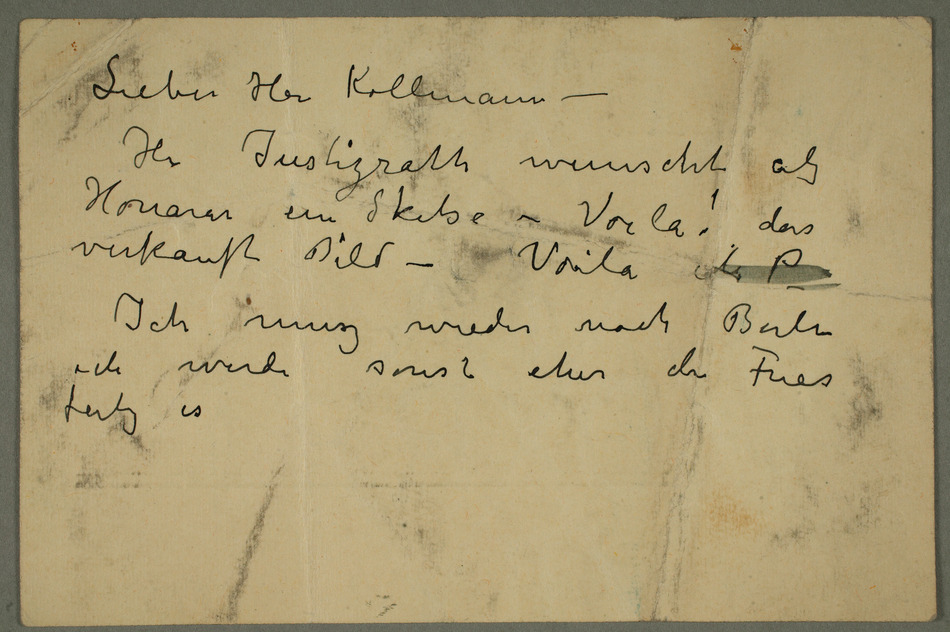 Lieber Herr Kollmann —
Hr Justizrath wünscht als
Honorar ein Skitse – Voila! das
verkauft Bild — Voila
Ich musz wieder nach Berlin
ich werde sonst eher der Fries
fertig is